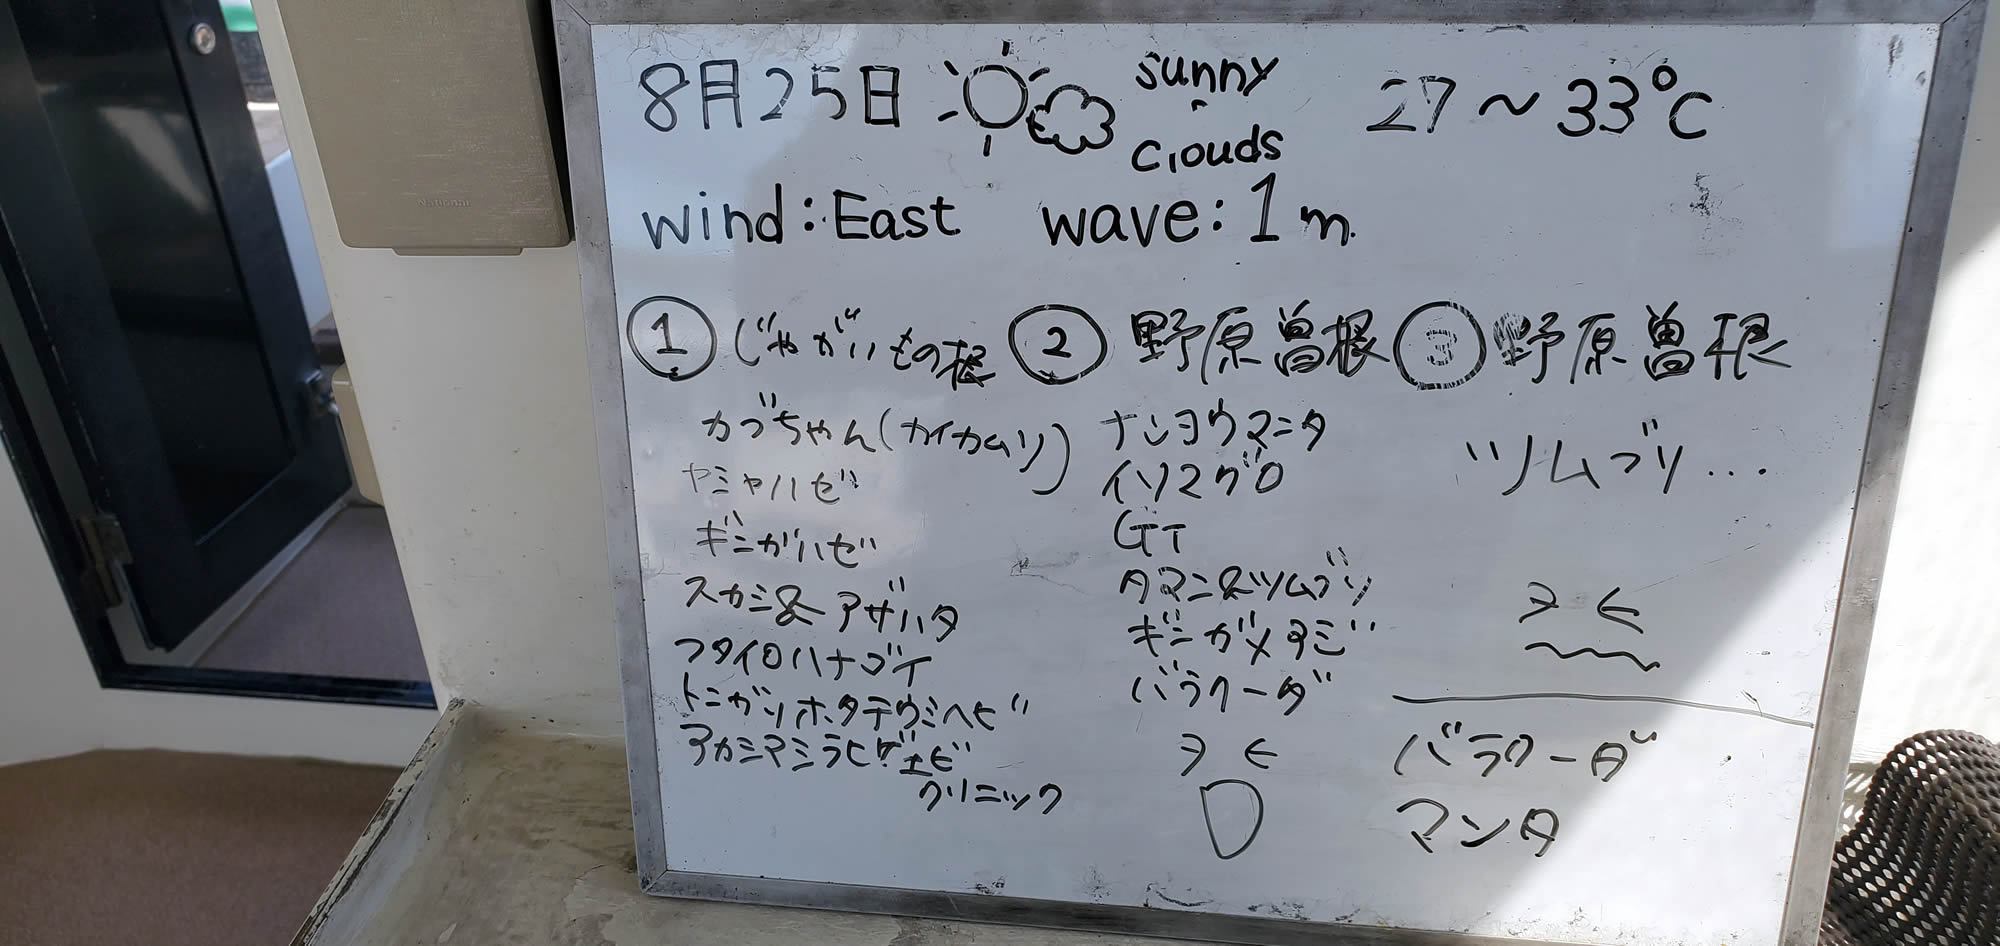 8月25日 sunny clouds 27～33℃
wind:East wave:1m.
① じゃがいもの根
かぶちゃん(カイカムリ)
ヤシャハゼ
ギンガハゼ
スカシ&アザハタ
フタイロハナゴイ
トンガリホタテウミヘビ
アカシマシラヒゲエビ
クリニック
② 野原曽根
ナンヨウマンタ
イソマグロ
GT
タマン&ツムブリ
ギンガメアジ
バラクーダ
③ 野原曽根
ツムブリ...
バラクーダ
マンタ
National